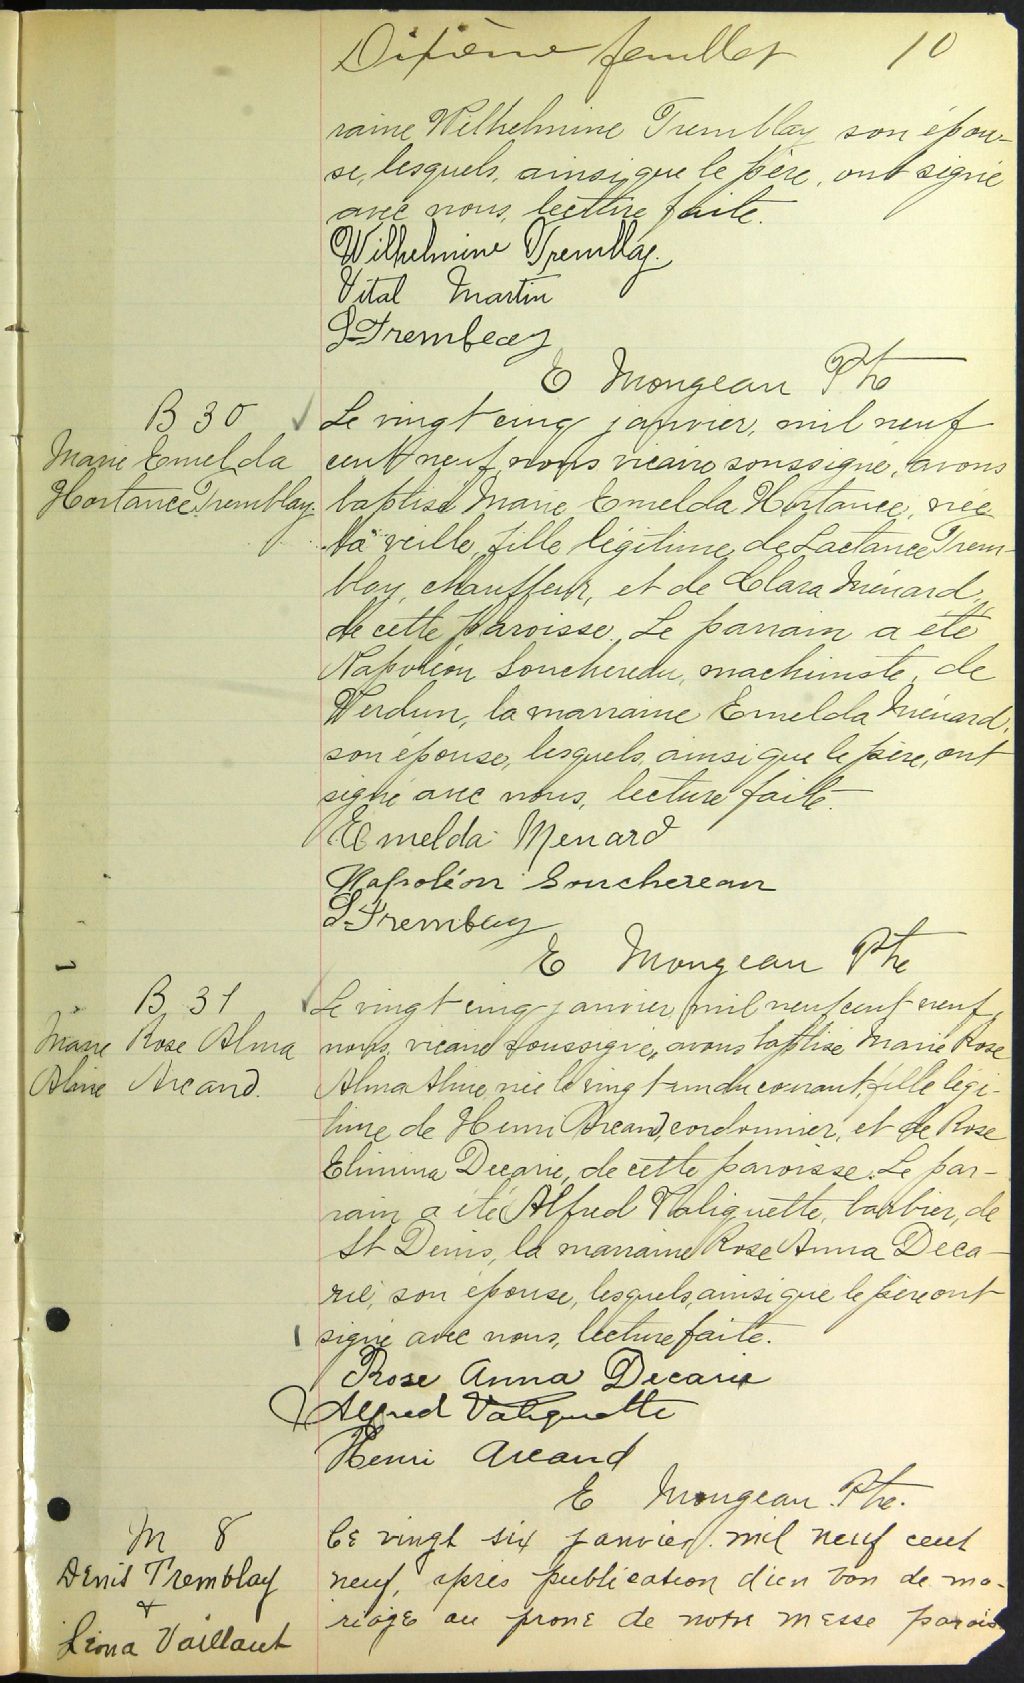 Dixième feuillet 10
raine Wilhelmine Tremblay son épou-
se, lesquels, ainsi que le père, ont signé
avec nous, lecture faite.
Wilhelmine Tremblay.
Vital Martin
L Tremblay
E Mongeau Ptre
B 30
Marie Emelda
Hortance Tremblay.
Le vingt cinq janvier, mil neuf
cent neuf, nous vicaire soussigné, avons
baptisé Marie Emelda Hortance, née
la veille, fille légitime de Lactance Trem-
blay, chauffeur, et de Clara Ménard,
de cette paroisse. Le parrain a été
Napoléon Souchereau, machiniste, de
Verdun, la marraine Emelda Ménard,
son épouse, lesquels, ainsi que le père, ont
signé avec nous, lecture faite.
Emelda Menard
Napoléon Souchereau
L Tremblay
E Mongeau Ptre
B 31
Marie Rose Alma
Aline Arcand.
Le vingt cinq janvier, mil neuf cent neuf,
nous, vicaire soussigné, avons baptisé Marie Rose
Alma Aline, née le vingt un du courant, fille légi-
time de Henri Arcand, cordonnier, et de Rose
Elimina Decarie, de cette paroisse. Le par-
rain a été Alfred Valiquette, barbier, de
St Denis, la marraine Rose Anna Deca-
rie, son épouse, lesquels, ainsi que le père ont
signé avec nous, lecture faite.
Rose Anna Decarie
Alfred Valiquette
Henri Arcand
E Mongeau Ptre.
M 8
Denis Tremblay
+
Léona Vaillant
Le vingt six janvier mil neuf cent
neuf, après publication d'un ban de ma-
riage au prone de notre messe parois